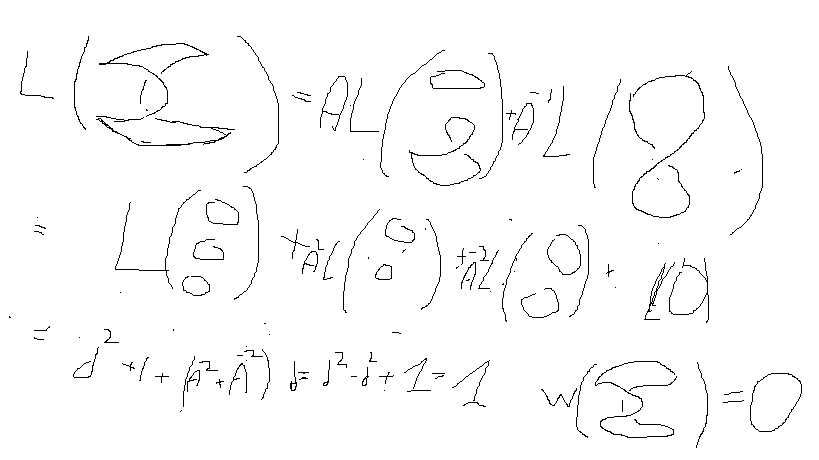 L( ) = AL( ) + A⁻¹L( )
= L( ) + A²L( ) + A⁻²L( ) + L( )
= d² + 1 + (A² + A⁻²) d = d² - d² + 1 = 1
w( ) = 0